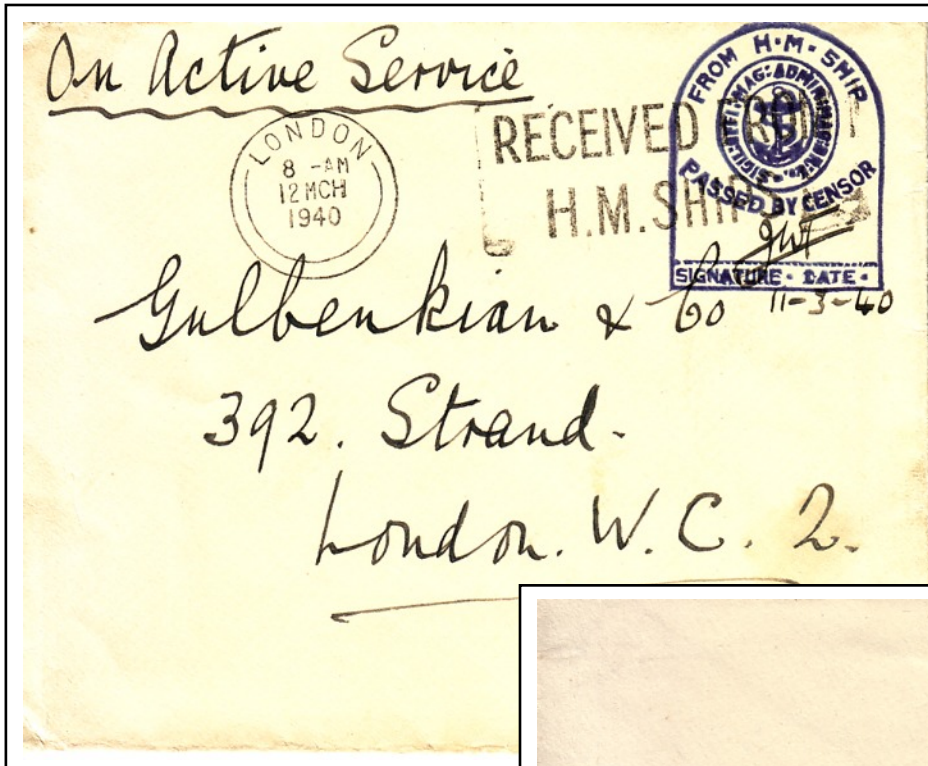 On Active Service
LONDON
8 -AM
12 MCH
1940
RECEIVED FROM
H.M. SHIPS
FROM H·M· SHIP
PASSED BY CENSOR
SIGNATURE · DATE ·
11-3-40
Gulbenkian & Co
392. Strand.
London. W. C. 2.